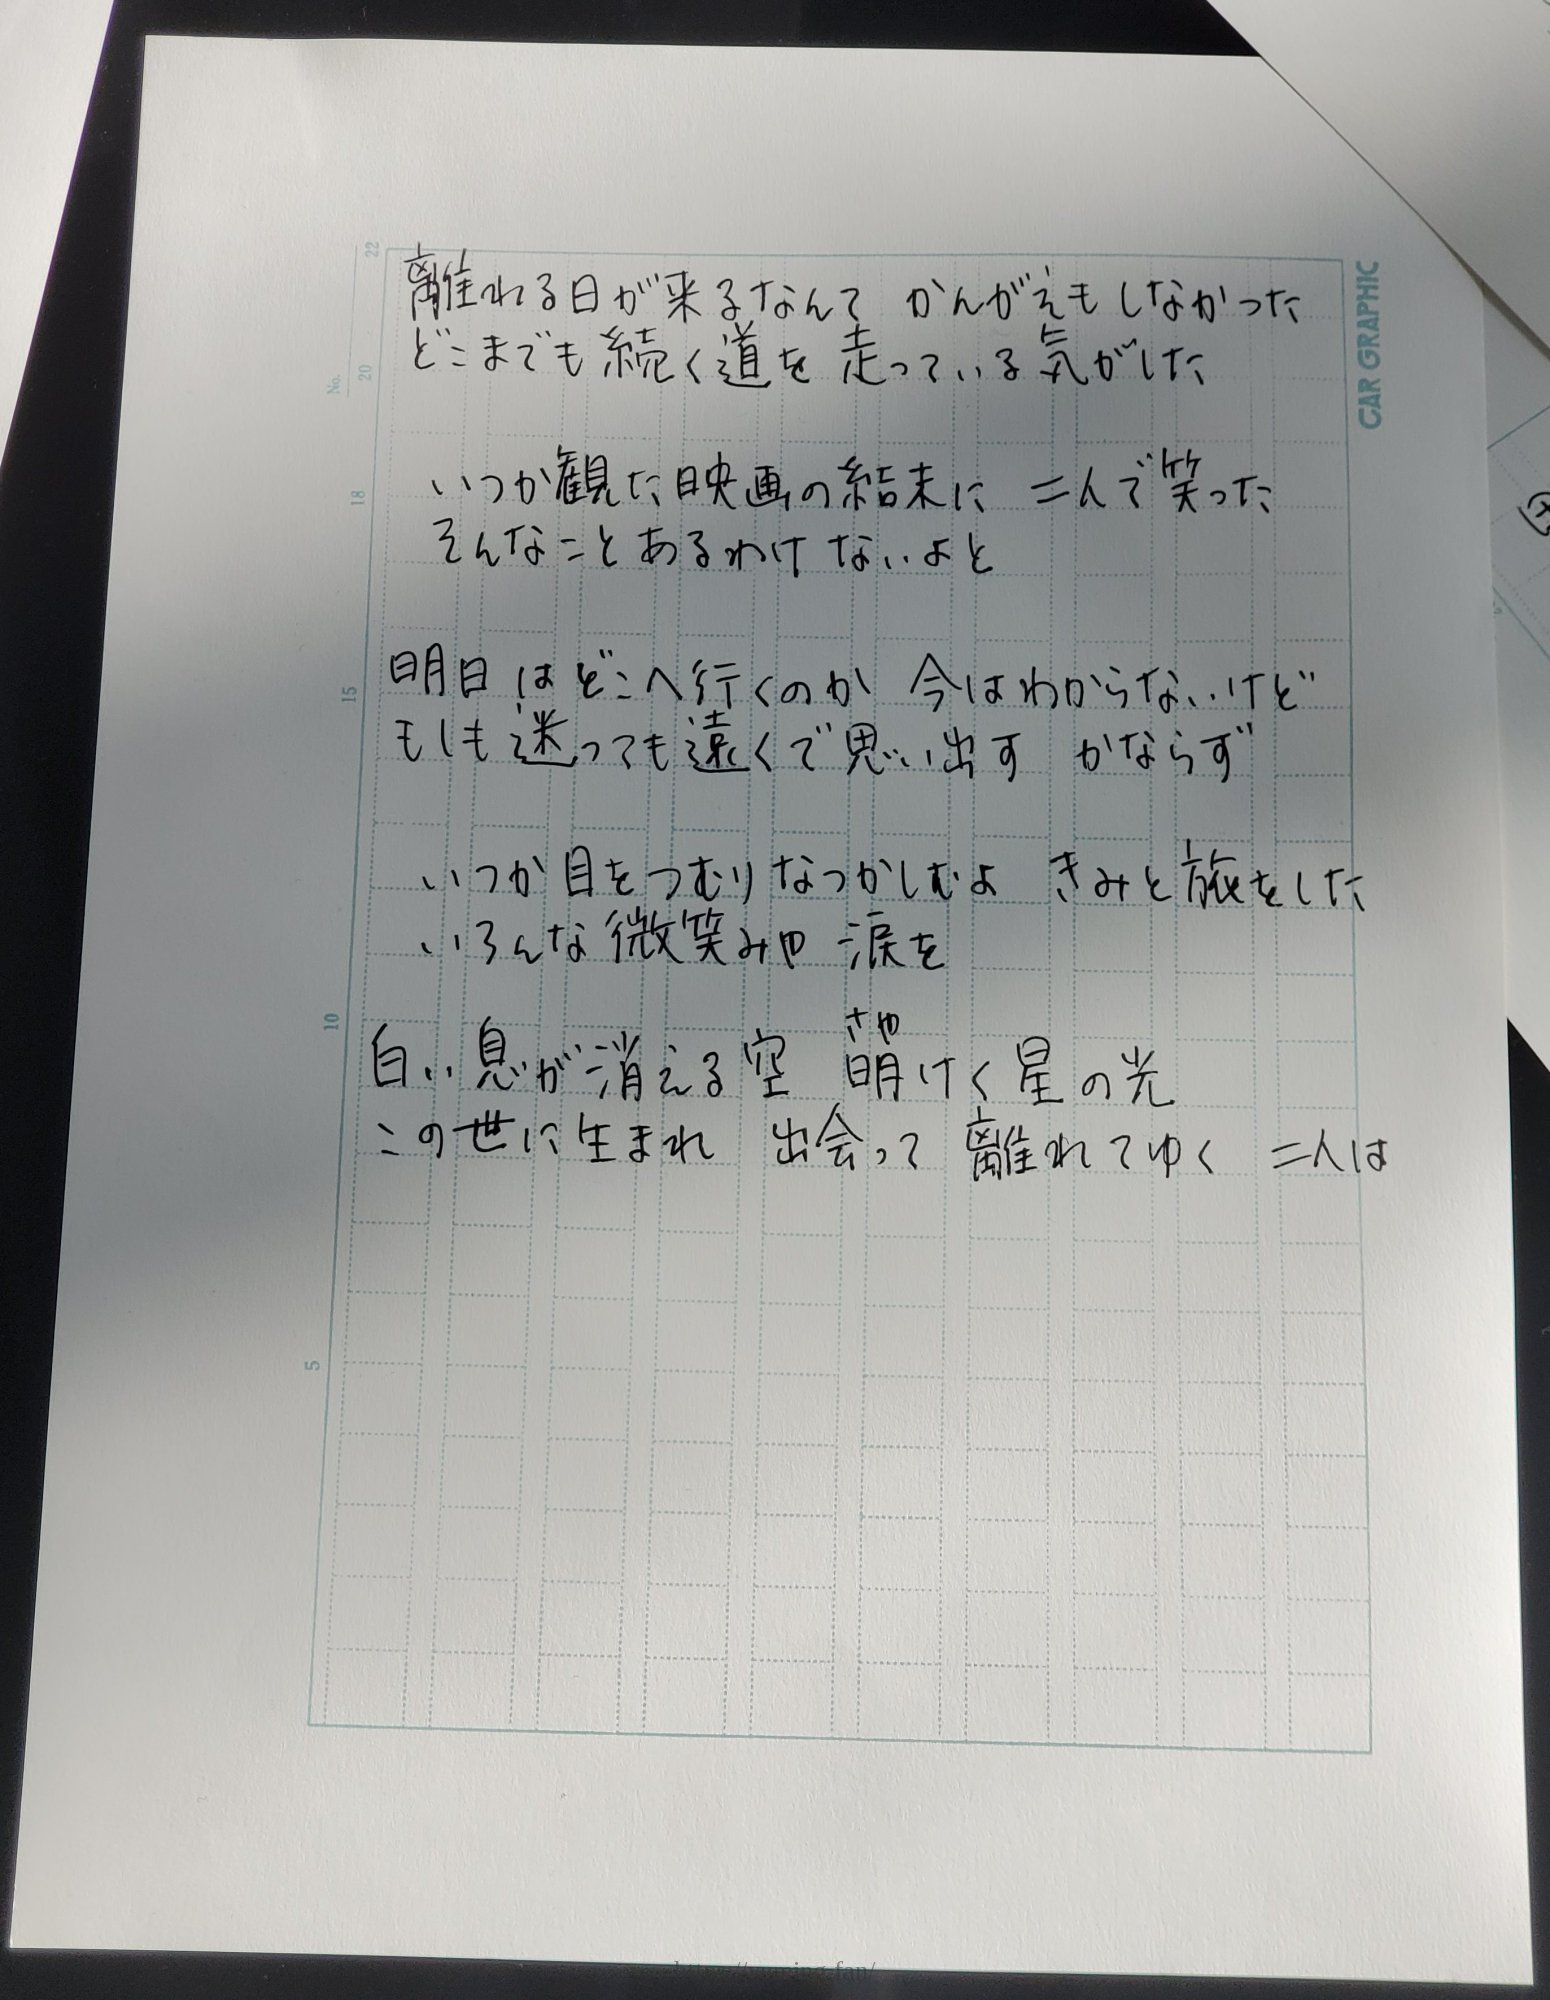 離れる日が来るなんて かんがえもしなかった
どこまでも続く道を 走っている気がした
いつか観た映画の結末に 二人で笑った
そんなことあるわけないよと
明日はどこへ行くのか 今はわからないけど
もしも迷っても遠くで思い出す かならず
いつか目をつむりなつかしむよ きみと旅をした
いろんな微笑みや 涙を
さや
白い息が消える空 明けく星の光
この世に生まれ 出会って 離れてゆく 二人は
CAR GRAPHIC
No.
22
20
18
15
10
5